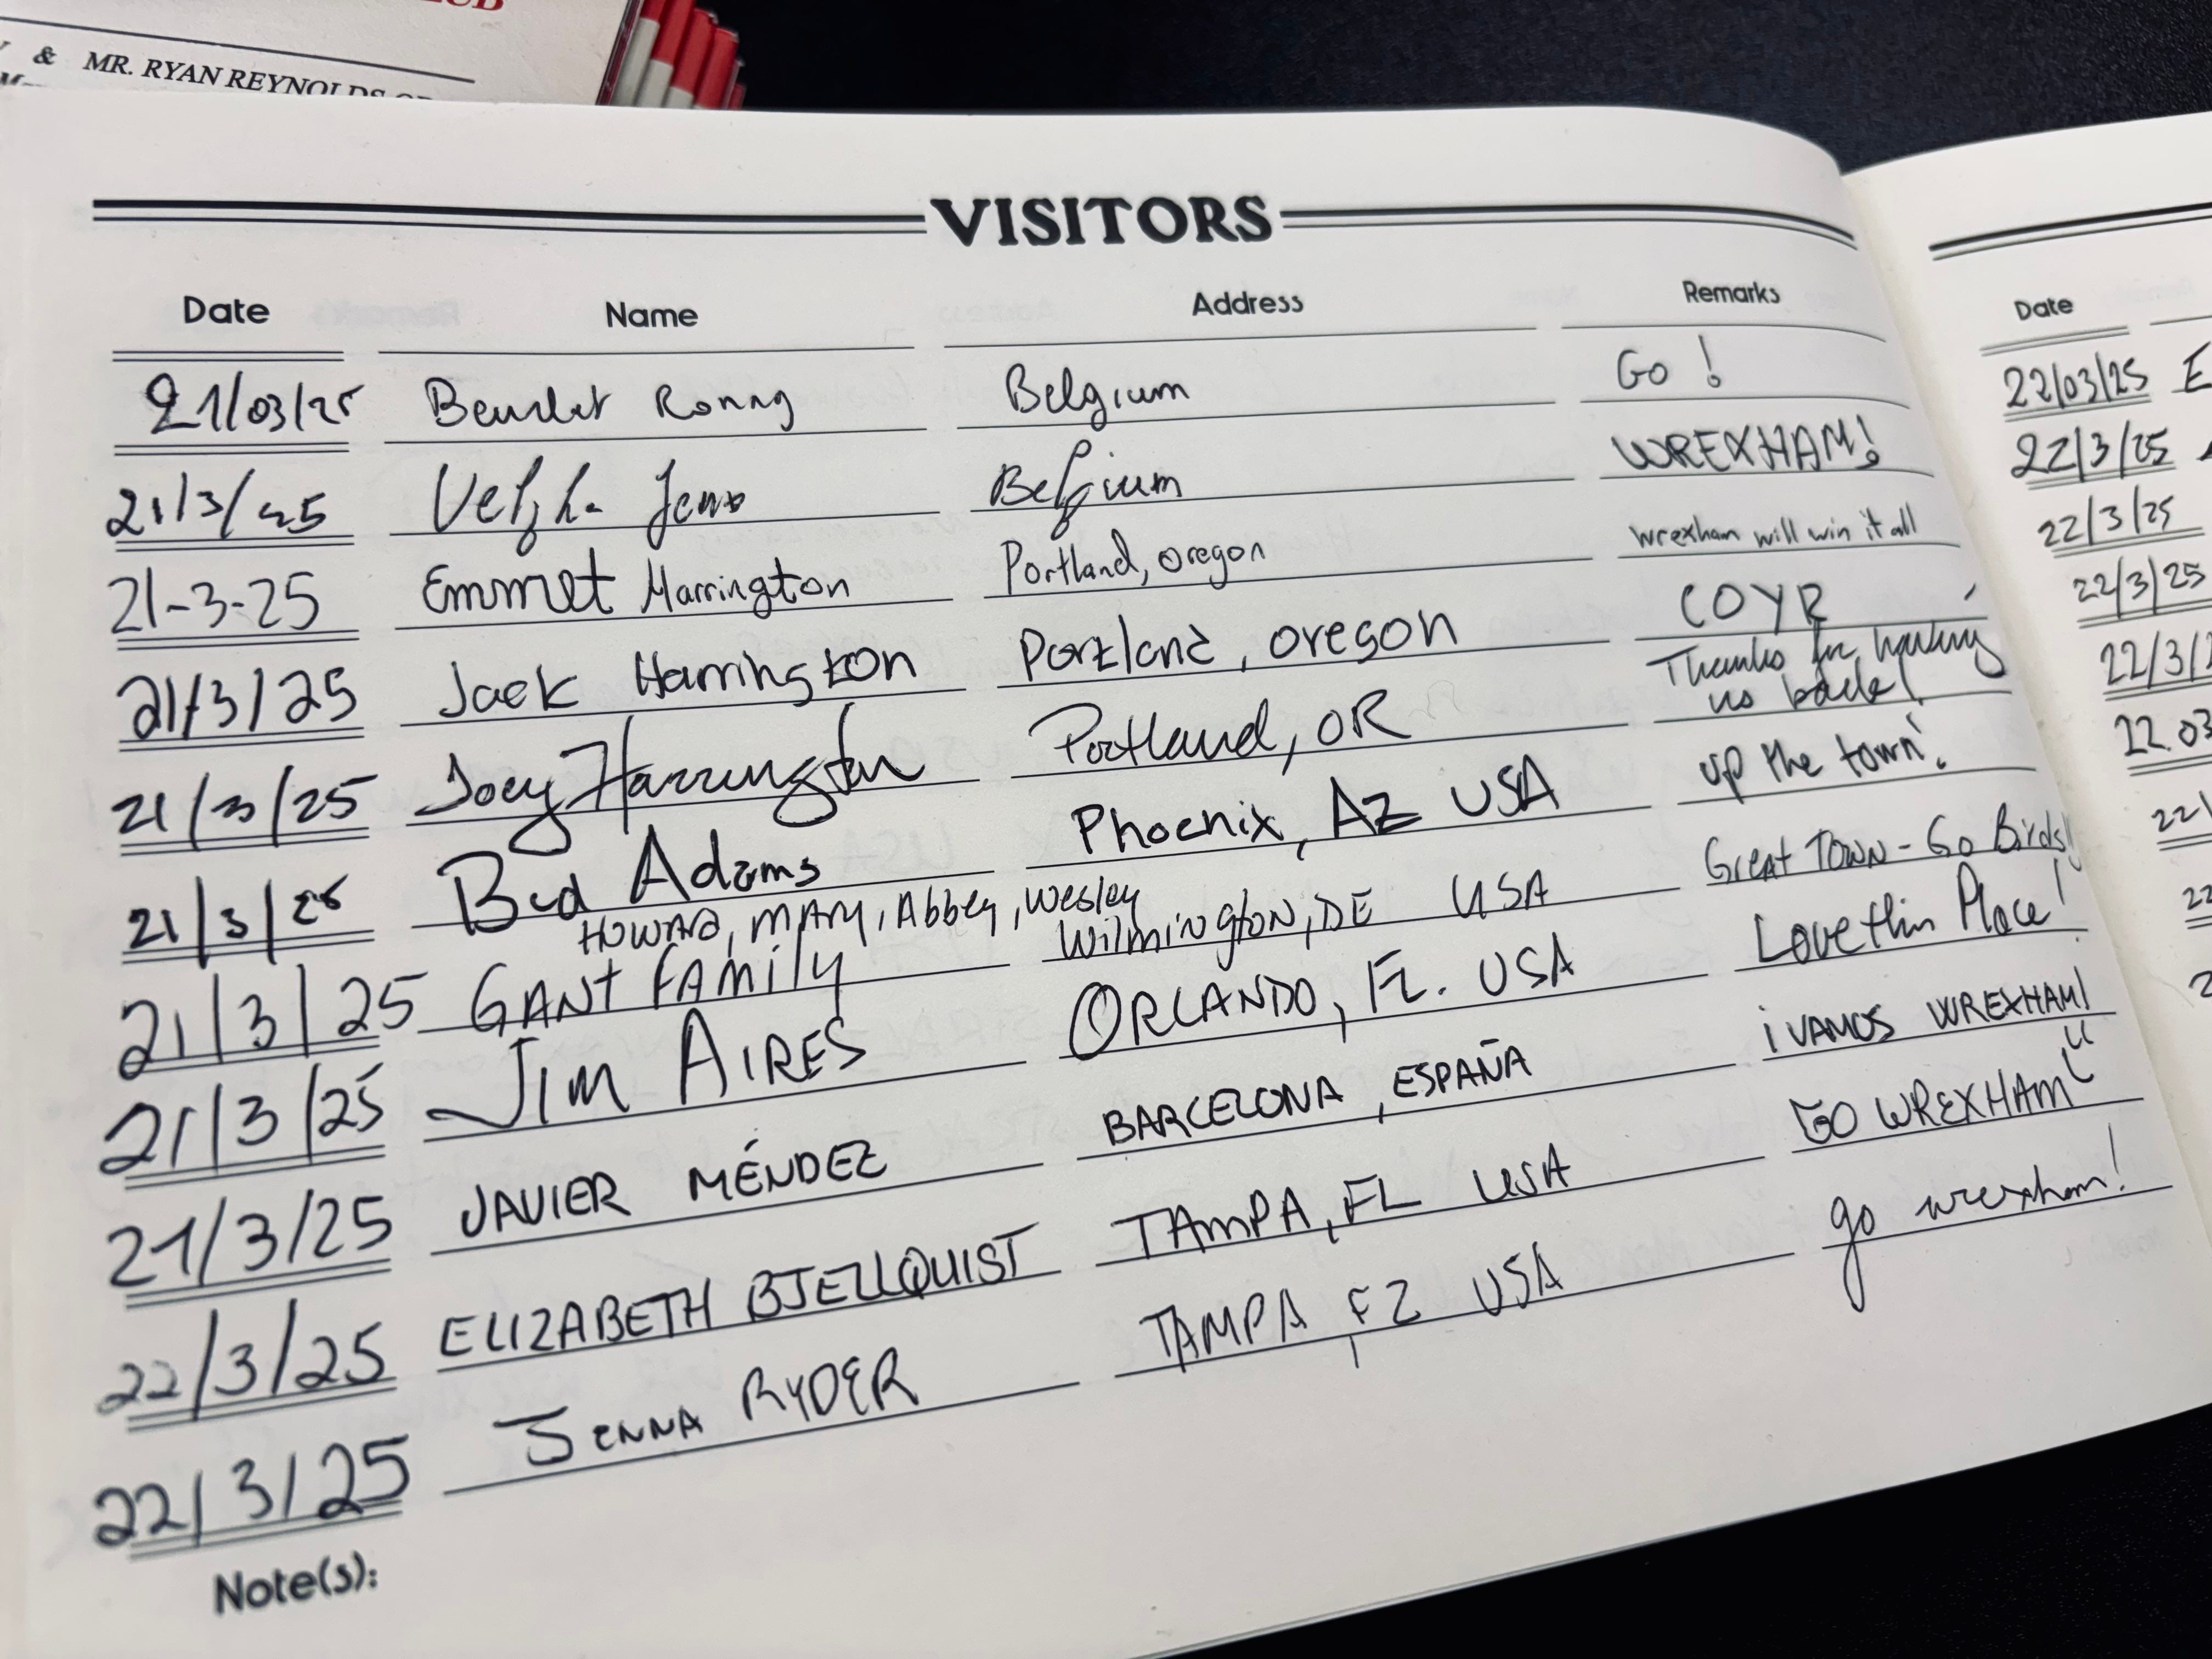 & MR. RYAN REYNOLDS
VISITORS
Date Name Address Remarks
21/03/25 Belgium Go !
21/3/25 Belgium WREXHAM!
21-3-25 Emmet Harrington Portland, oregon Wrexham will win it all
21/3/25 Jack Harrington Portland, oregon COYR
21/3/25 Joey Harrington Portland, OR Thanks for having
us back!
21/3/25 Bud Adams Phoenix, AZ USA up the town!
HOWARD, MARY, Abbey, Wesley
21/3/25 GANT FAMily Wilmington, DE USA Great Town - Go Birds!
21/3/25 JIM AIRES ORLANDO, FL. USA Love this Place!
21/3/25 JAVIER MÉNDEZ BARCELONA, ESPAÑA ¡VAMOS WREXHAM!
22/3/25 ELIZABETH BJELLQUIST TAMPA, FL USA GO WREXHAM
22/3/25 JENNA RYDER TAMPA, FL USA go wrexham!
Note(s):
Date
22/03/25 E
22/3/25
22/3/25
22/3/25
22/3/
22.03